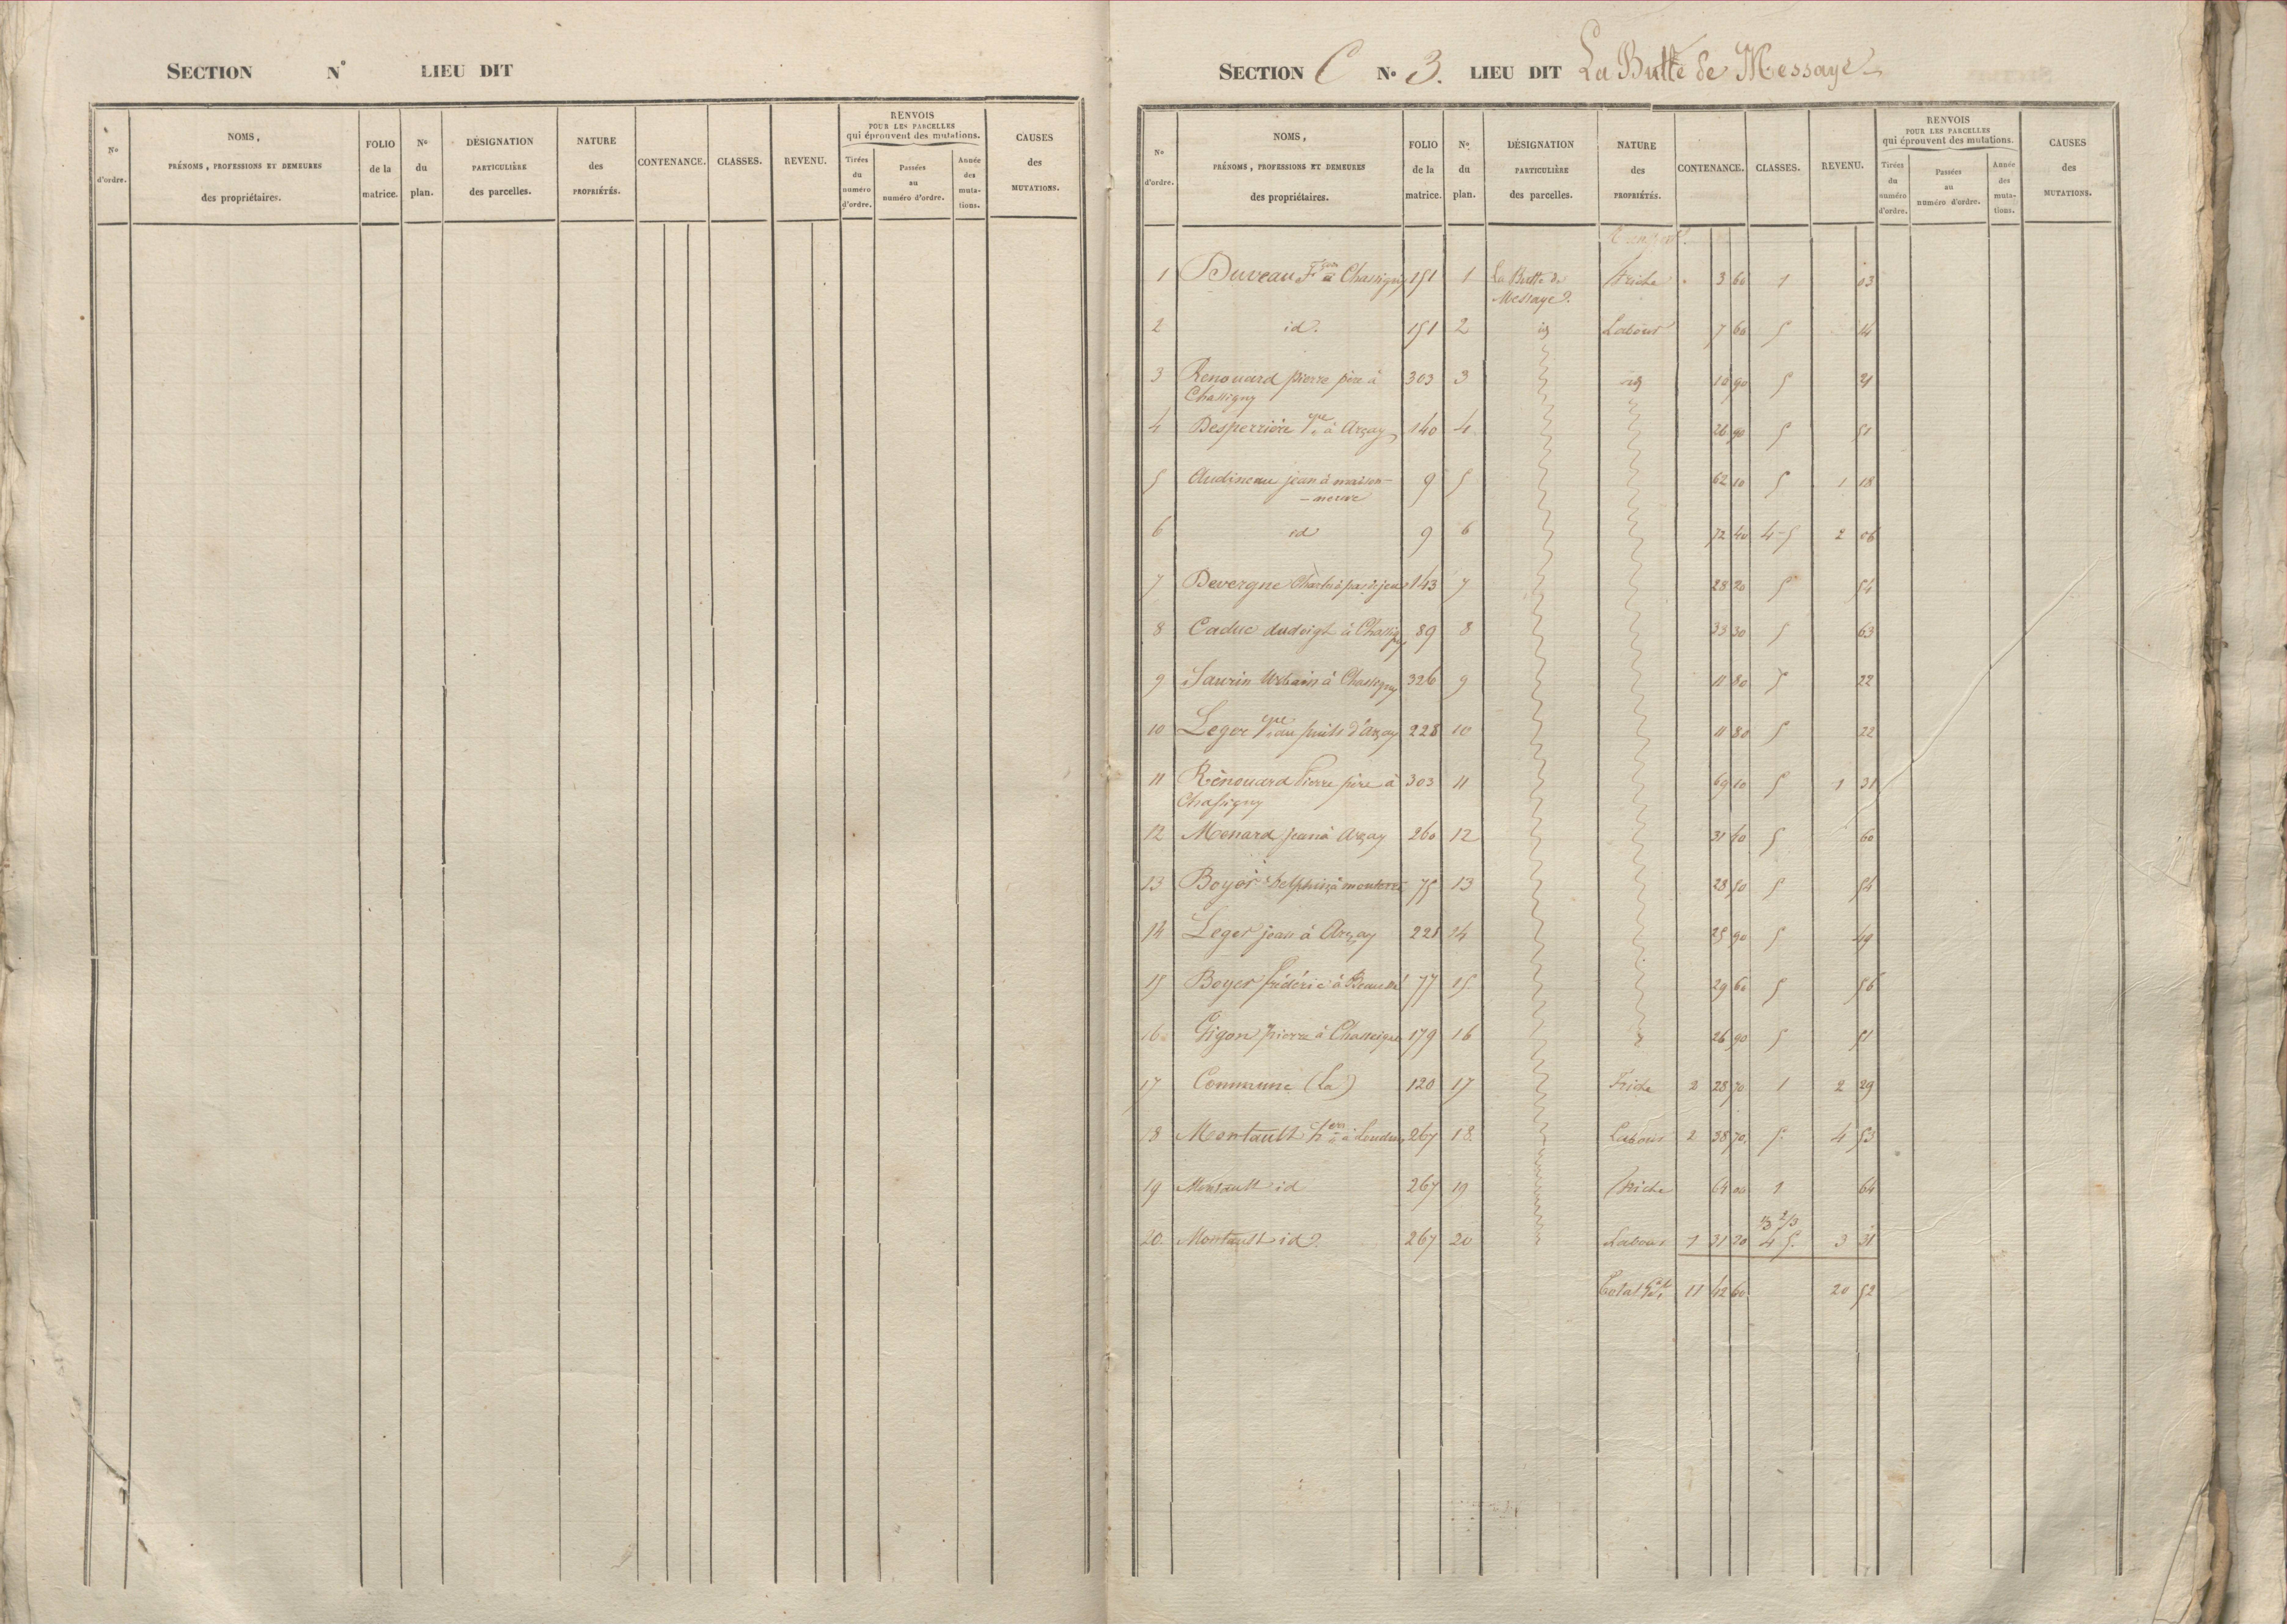 SECTION N° LIEU DIT
N° d'ordre. NOMS, PRÉNOMS, PROFESSIONS ET DEMEURES des propriétaires. FOLIO de la matrice. N° du plan. DÉSIGNATION PARTICULIÈRE des parcelles. NATURE des PROPRIÉTÉS. CONTENANCE. CLASSES. REVENU. RENVOIS POUR LES PARCELLES qui éprouvent des mutations. Tirées du numéro d'ordre. Passées au numéro d'ordre. Année des mutations. CAUSES des MUTATIONS.
SECTION C N° 3. LIEU DIT La Butte de Messaye
N° d'ordre. NOMS, PRÉNOMS, PROFESSIONS ET DEMEURES des propriétaires. FOLIO de la matrice. N° du plan. DÉSIGNATION PARTICULIÈRE des parcelles. NATURE des PROPRIÉTÉS. CONTENANCE. CLASSES. REVENU. RENVOIS POUR LES PARCELLES qui éprouvent des mutations. Tirées du numéro d'ordre. Passées au numéro d'ordre. Année des mutations. CAUSES des MUTATIONS.
1 Duveau à Chassigny 151 1 la Butte de Messaye friche 3 60 1 03
2 id. 151 2 id Labour 7 60 5 14
3 Renouard pierre père à Chassigny 303 3 id 10 90 5 21
4 Desperrière Ve à Arçay 140 4 26 90 5 51
5 Audineau jean à maison-neuve 9 5 62 10 5 1 18
6 id 9 6 72 40 4-5 2 06
7 Devergne Charles 143 7 28 20 5 54
8 Caduc dudoigt à Chassigny 89 8 33 30 5 63
9 Saurin Urbain à Chassigny 326 9 11 80 5 22
10 Leger Ve au puits d'Arçay 228 10 11 80 5 22
11 Renouard Pierre père à Chassigny 303 11 69 10 5 1 31
12 Menard jean à Arçay 260 12 31 40 5 60
13 Boyer Delphin à monterre 75 13 28 50 5 54
14 Leger jean à Arçay 221 14 25 90 5 49
15 Boyer frédéric à 77 15 29 60 5 56
16 Gigon pierre à Chasseigne 179 16 26 90 5 51
17 Commune (La) 120 17 Friche 2 28 70 1 2 29
18 Montault hers à Loudun 267 18 Labour 2 38 70 5 4 53
19 Montault id 267 19 friche 64 00 1 64
20 Montault id. 267 20 Labour 1 31 20 1/3 2/3 4 5. 3 31
Total 11 42 60 20 52